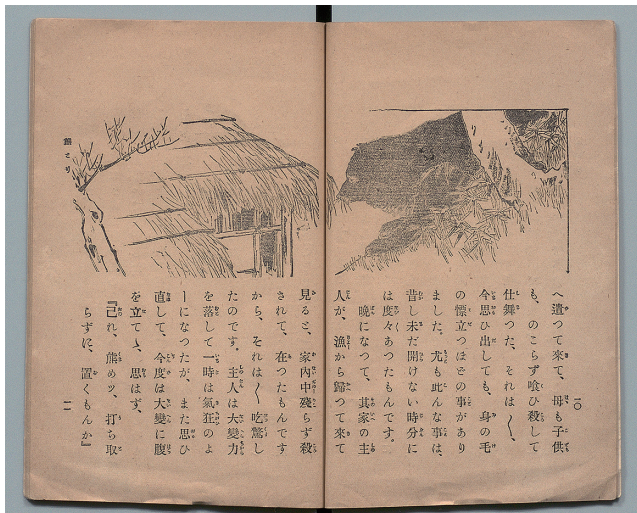 へ遣つて來て、母も子供
も、のこらず喰ひ殺して
仕舞つた、それは〱、
今思ひ出しても、身の毛
の慄立つほどの事があり
ました。尤も此んな事は、
昔し未だ開けない時分に
は度々あつたもんです。
晩になつて、其家の主
人が、漁から歸つて來て
一〇
見ると、家內中殘らず殺
されて、在つたもんです
から、それは〱吃驚し
たのです。主人は大變力
を落して一時は氣狂のよ
ーになつたが、また思ひ
直して、今度は大變に腹
を立てゝ、思はず、
『己れ、熊めッ、打ち取
らずに、置くもんか』
一一